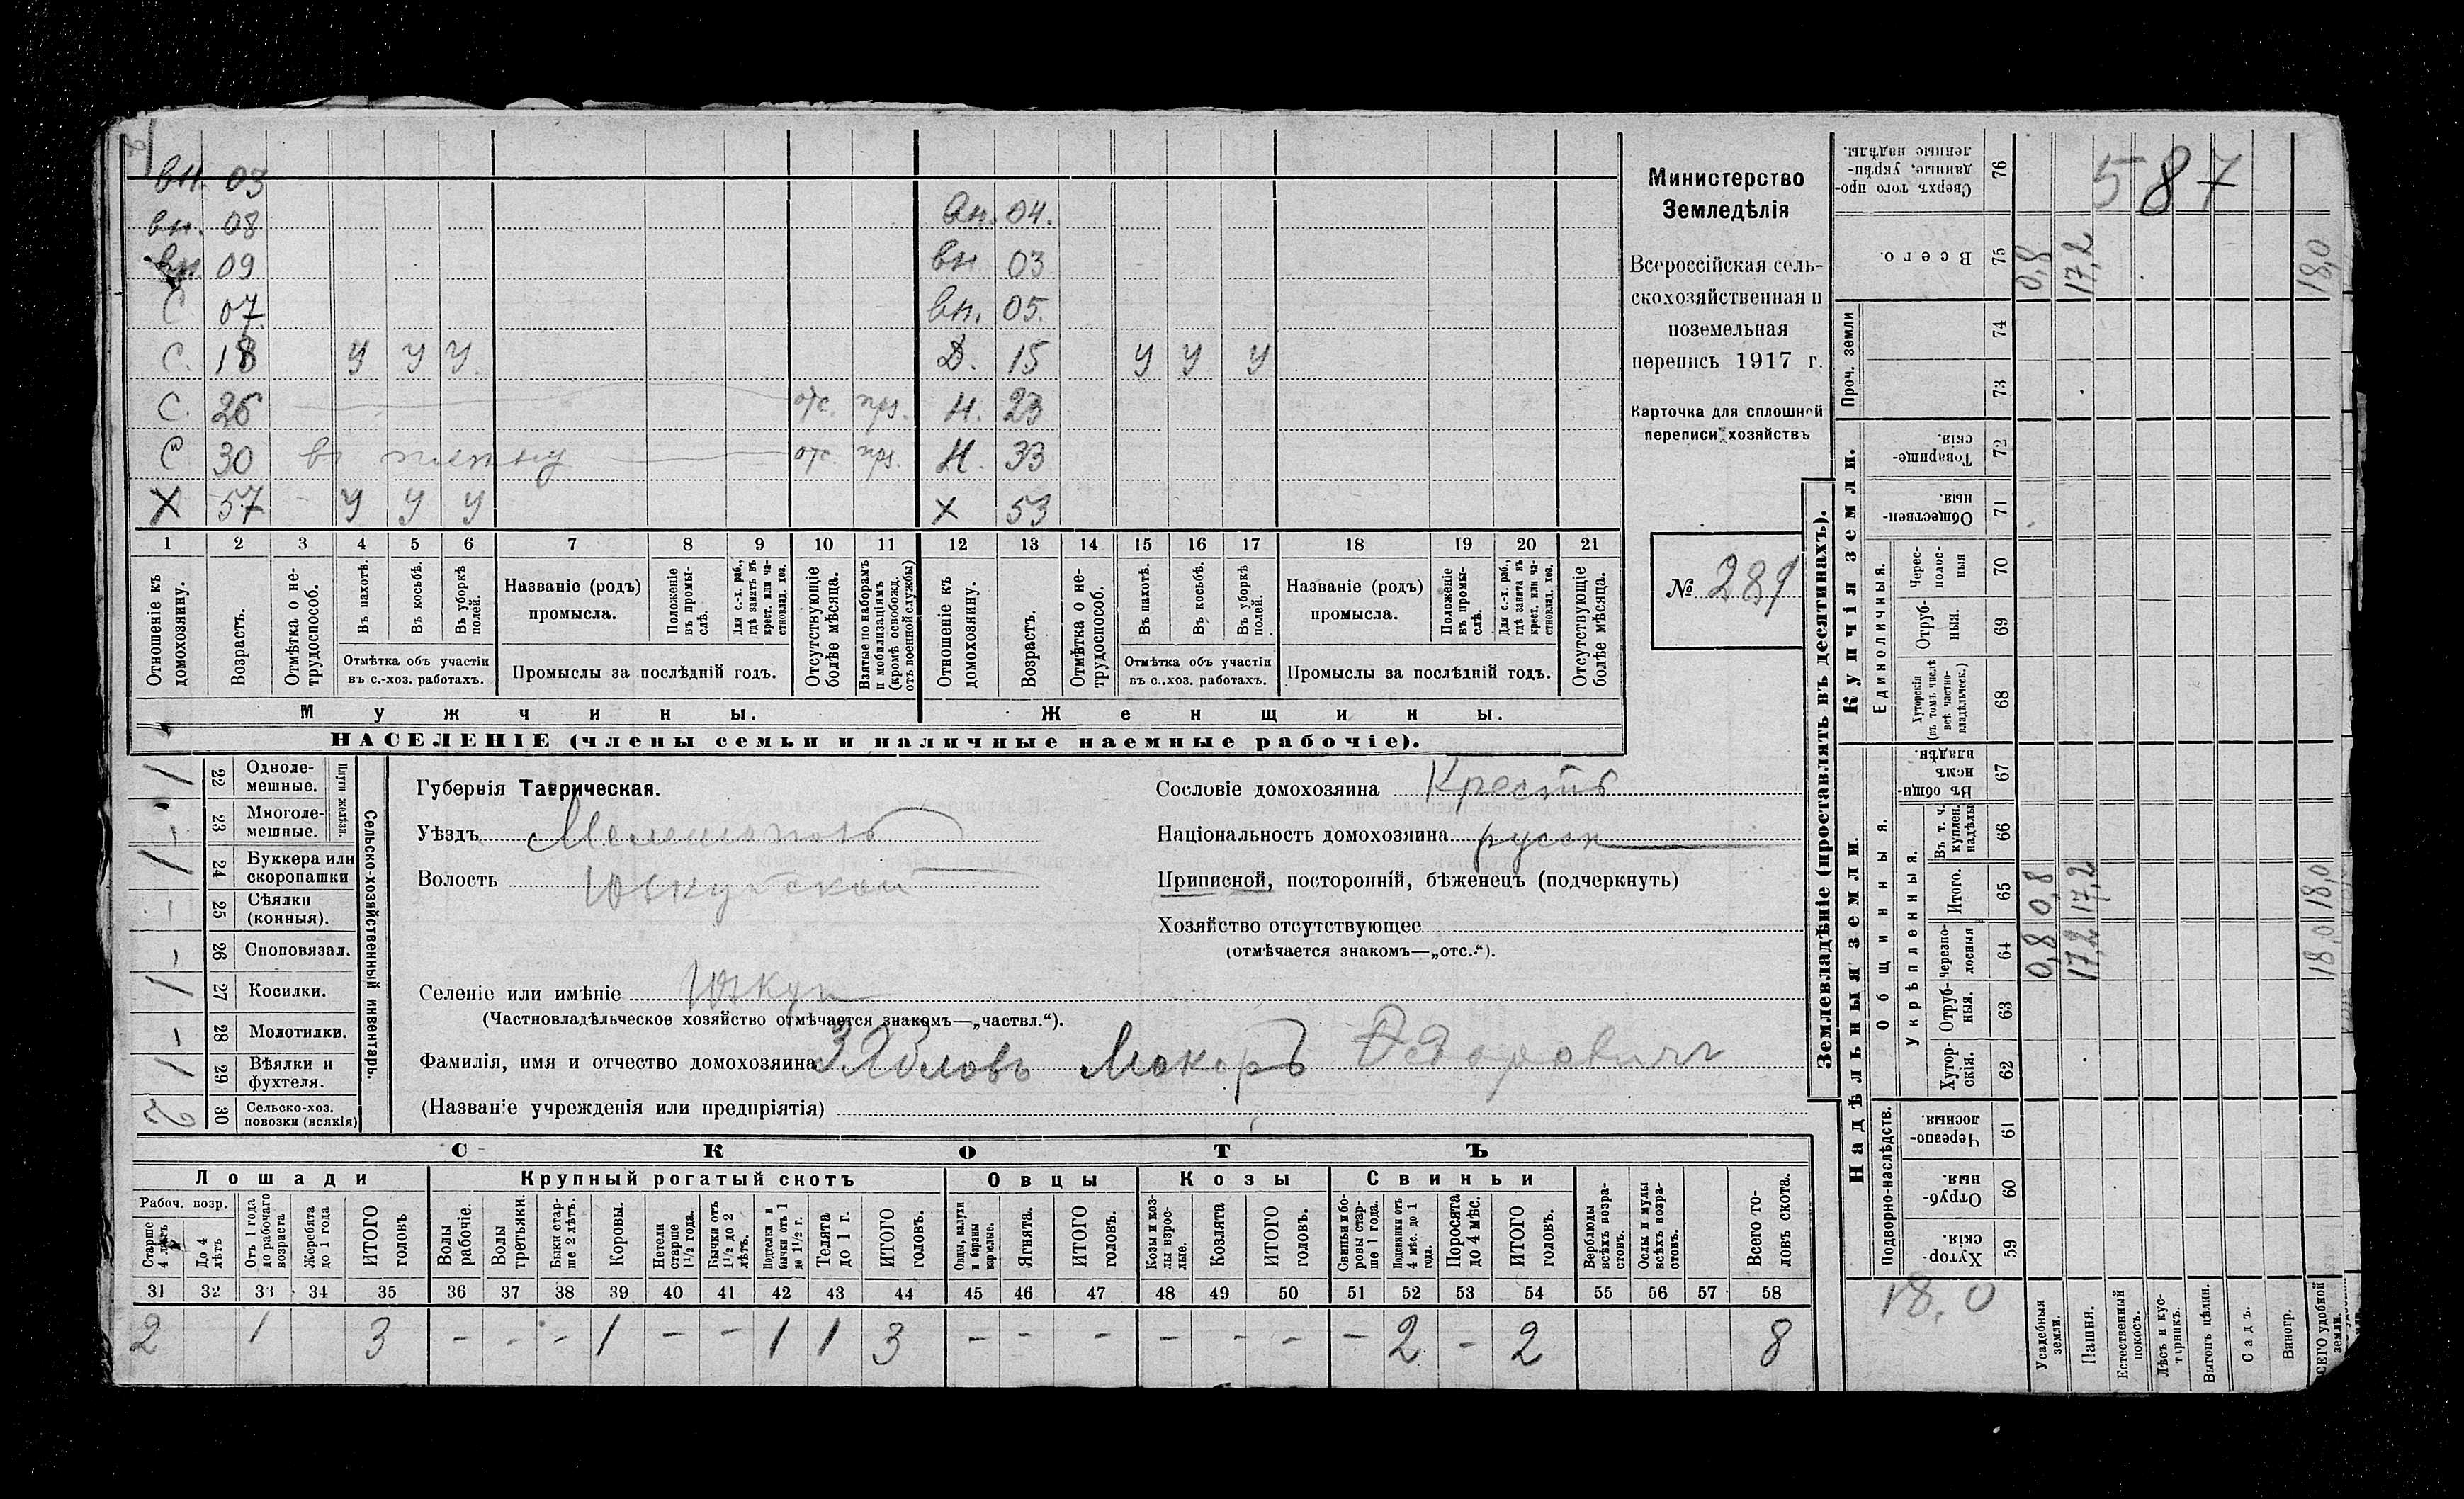 вн. 03
вн. 08 вн. 04.
вн 09 вн 03
С 07 вн. 05.
С. 18 У У У Д. 15 У У У
С. 26 отс. прз. Н. 23
С 30 въ плѣну отс. прз. Н. 33
Х 57 У У У Х 53
1 2 3 4 5 6 7 8 9 10 11 12 13 14 15 16 17 18 19 20 21
Отношеніе къ домохозяину.
Возрастъ.
Отмѣтка о нетрудоспособ.
Въ пахотѣ.
Въ косьбѣ.
Въ уборкѣ полей.
Отмѣтка объ участіи
въ с.-хоз. работахъ.
Названіе (родъ)
промысла.
Положеніе въ промыслѣ.
Для с.-х. раб., гдѣ занятъ въ крест. или частновлад. хоз.
Промыслы за послѣдній годъ.
Отсутствующіе болѣе мѣсяца.
Взятые по наборамъ и мобилизаціямъ (кромѣ освобожд. отъ военной службы)
Отношеніе къ домохозяину.
Возрастъ.
Отмѣтка о нетрудоспособ.
Въ пахотѣ.
Въ косьбѣ.
Въ уборкѣ полей.
Отмѣтка объ участіи
въ с.-хоз. работахъ.
Названіе (родъ)
промысла.
Положеніе въ промыслѣ.
Для с.-х. раб., гдѣ занята въ крест. или частновлад. хоз.
Промыслы за послѣдній годъ.
Отсутствующіе болѣе мѣсяца.
Мужчины. Женщины.
НАСЕЛЕНІЕ (члены семьи и наличные наемные рабочіе).
Министерство
Земледѣлія
Всероссійская сель-
скохозяйственная и
поземельная
перепись 1917 г.
Карточка для сплошной
переписи хозяйствъ
№ 289
Сельско-хозяйственный инвентарь.
Плуги желѣзн.
1 22 Одноле-
мешные.
- 23 Многоле-
мешные.
1 24 Буккера или
скоропашки
- 25 Сѣялки
(конныя).
- 26 Сноповязал.
1 27 Косилки.
- 28 Молотилки.
1 29 Вѣялки и
фухтеля.
2 30 Сельско-хоз.
повозки (всякія)
Губернія Таврическая.
Уѣздъ
Волость
Селеніе или имѣніе Юзкуи
(Частновладѣльческое хозяйство отмѣчается знакомъ—„частвл.“).
Фамилія, имя и отчество домохозяина Макаръ Ѳедоровичъ
(Названіе учрежденія или предпріятія)
Сословіе домохозяина Крестъ
Національность домохозяина русск
Приписной, посторонній, бѣженецъ (подчеркнуть)
Хозяйство отсутствующее
(отмѣчается знакомъ—„отс.“).
СКОТЪ
Лошади Крупный рогатый скотъ Овцы Козы Свиньи
Рабоч. возр.
Старше 4 лѣтъ
До 4 лѣтъ
Отъ 1 года до рабочаго возраста
Жеребята до 1 года
ИТОГО головъ
Волы рабочіе.
Волы третьяки.
Быки старше 2 лѣтъ.
Коровы.
Нетели старше 1½ года.
Бычки отъ 1½ до 2 лѣтъ.
Подтелки и бычки отъ 1 до 1½ г.
Телята до 1 г.
ИТОГО головъ.
Овцы, валухи и бараны взрослые.
Ягнята.
ИТОГО головъ.
Козы и козлы взрослые.
Козлята
ИТОГО головъ.
Свиньи и боровы старше 1 года.
Подсвинки отъ 4 мѣс. до 1 года.
Поросята до 4 мѣс.
ИТОГО головъ.
Верблюды всѣхъ возрастовъ.
Ослы и мулы всѣхъ возрастовъ.
Всего головъ скота.
31 32 33 34 35 36 37 38 39 40 41 42 43 44 45 46 47 48 49 50 51 52 53 54 55 56 57 58
2 1 3 - - - 1 - - 1 1 3 - - - - - - - 2 - 2 8
Землевладѣніе (проставлять въ десятинахъ).
Надѣльныя земли. Купчія земли.
Проч. земли
Подворно-наслѣдств.
Общинныя.
Укрѣпленныя.
Единоличныя.
Сверхъ того проданные, укрѣпленные надѣлы. 76
Всего. 75 0,8 17,2 18,0
74
73
Товарищескія. 72
Общественныя. 71
Чересполосныя 70
Отрубныя. 69
Хуторскія (въ томъ числѣ всѣ частновладѣльческ.) 68
Въ общинномъ владѣн. 67
Въ т. ч. куплен. надѣлы 66
Итого. 65 0,8 17,2 18,0
Черезполосныя 64 0,8 17,2 18,0
Отрубныя. 63
Хуторскія. 62
Черезполосныя 61
Отрубныя. 60
Хуторскія. 59
587
18,0
Усадебныя земли.
Пашня.
Естественный покосъ.
Лѣсъ и кустарникъ.
Выгонъ цѣлин.
Садъ.
Виногр.
ВСЕГО удобной земли.